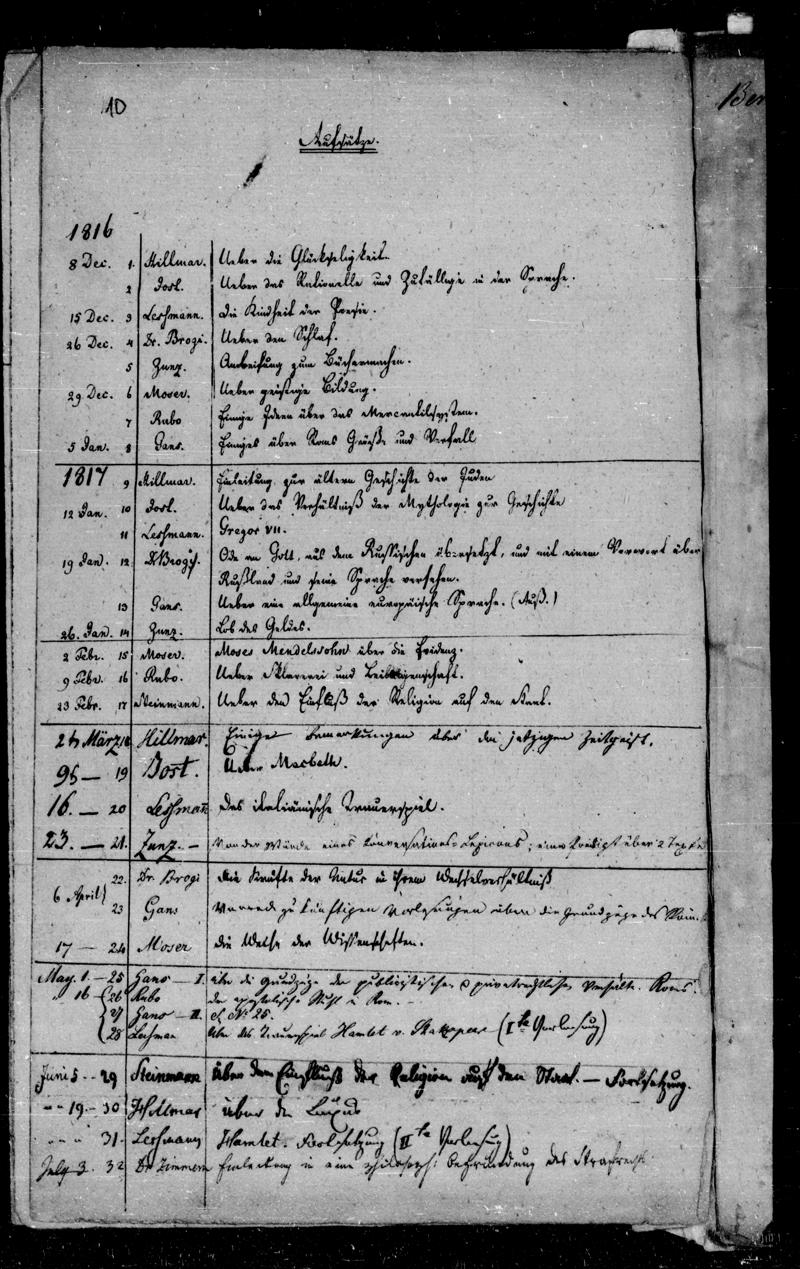 10
Aufsätze.
Ber
1816
8 Dec. 1. Hillmar. Ueber die Glückseligkeit.
2 Jost. Ueber das Rationelle und Zufällige in der Sprache.
15 Dec. 3 Leshmann. Die Kindheit der Poesie.
26 Dec. 4 Dr. Brogi. Ueber den Schlaf.
5 Zunz. Anweisung zum Büchermachen.
29 Dec. 6 Moser. Ueber geistige Bildung.
7 Rubo Einige Ideen über das Mercantilsystem.
5 Jan. 8 Gans. Einiges über Roms Größe und Verfall
1817 9 Hillmar. Einleitung zur ältern Geschichte der Juden
12 Jan. 10 Jost. Ueber das Verhältniß der Mythologie zur Geschichte
11 Leshmann. Gregor VII.
19 Jan. 12 Dr Brogi. Ode an Gott, aus dem Russischen übersetzt, und mit einem Vorwort über
Rußland und seine Sprache versehen.
13 Gans. Ueber eine allgemeine europäische Sprache. (Ausz.)
26. Jan. 14 Zunz. Lob des Geldes.
2 Febr. 15 Moser. Moses Mendelssohn über die Evidenz.
9 Febr. 16 Rubo. Ueber Sklaverei und Leibeigenschaft.
23 Febr. 17 Steinmann. Ueber den Einfluß der Religion auf den Staat.
2t März 18 Hillmar. Einige Bemerkungen über den jetzigen Zeitgeist.
9t — 19 Jost. Ueber Macbeth.
16. — 20 Leshmann Das italiänische Trauerspiel.
23. — 21. Zunz. — Von der Würde eines Conversations-Lexicons; eine Predigt über 2 Texte
22. Dr. Brogi Die Kräfte der Natur in ihrem Wechselverhältniß
6 April 23 Gans Vorrede zu künftigen Vorlesungen über die Grundzüge des Röm.
17 — 24 Moser Die Weihe der Wissenschaften.
May. 1. — 25 Gans — I. über die Grundzüge der publicistischen & privatrechtlichen Verhältn. Roms.
" 16 — 26 Rubo der apostolische Stuhl in Rom. —
27 Gans — II. cf. No 25.
28 Leshman Ueber das Trauerspiel Hamlet v. Shakspear (Ite Vorlesung)
Juni 5 — 29 Steinmann über den Einfluß der Religion auf den Staat. — Fortsetzung.
" — 19. — 30 Hillmar über den Luxus
" " " 31. Leshmann Hamlet. Fortsetzung (IIte Vorlesung)
July 3. 32 Dr. Zimmern Einleitung in eine philosoph: Begründung des Strafrechts